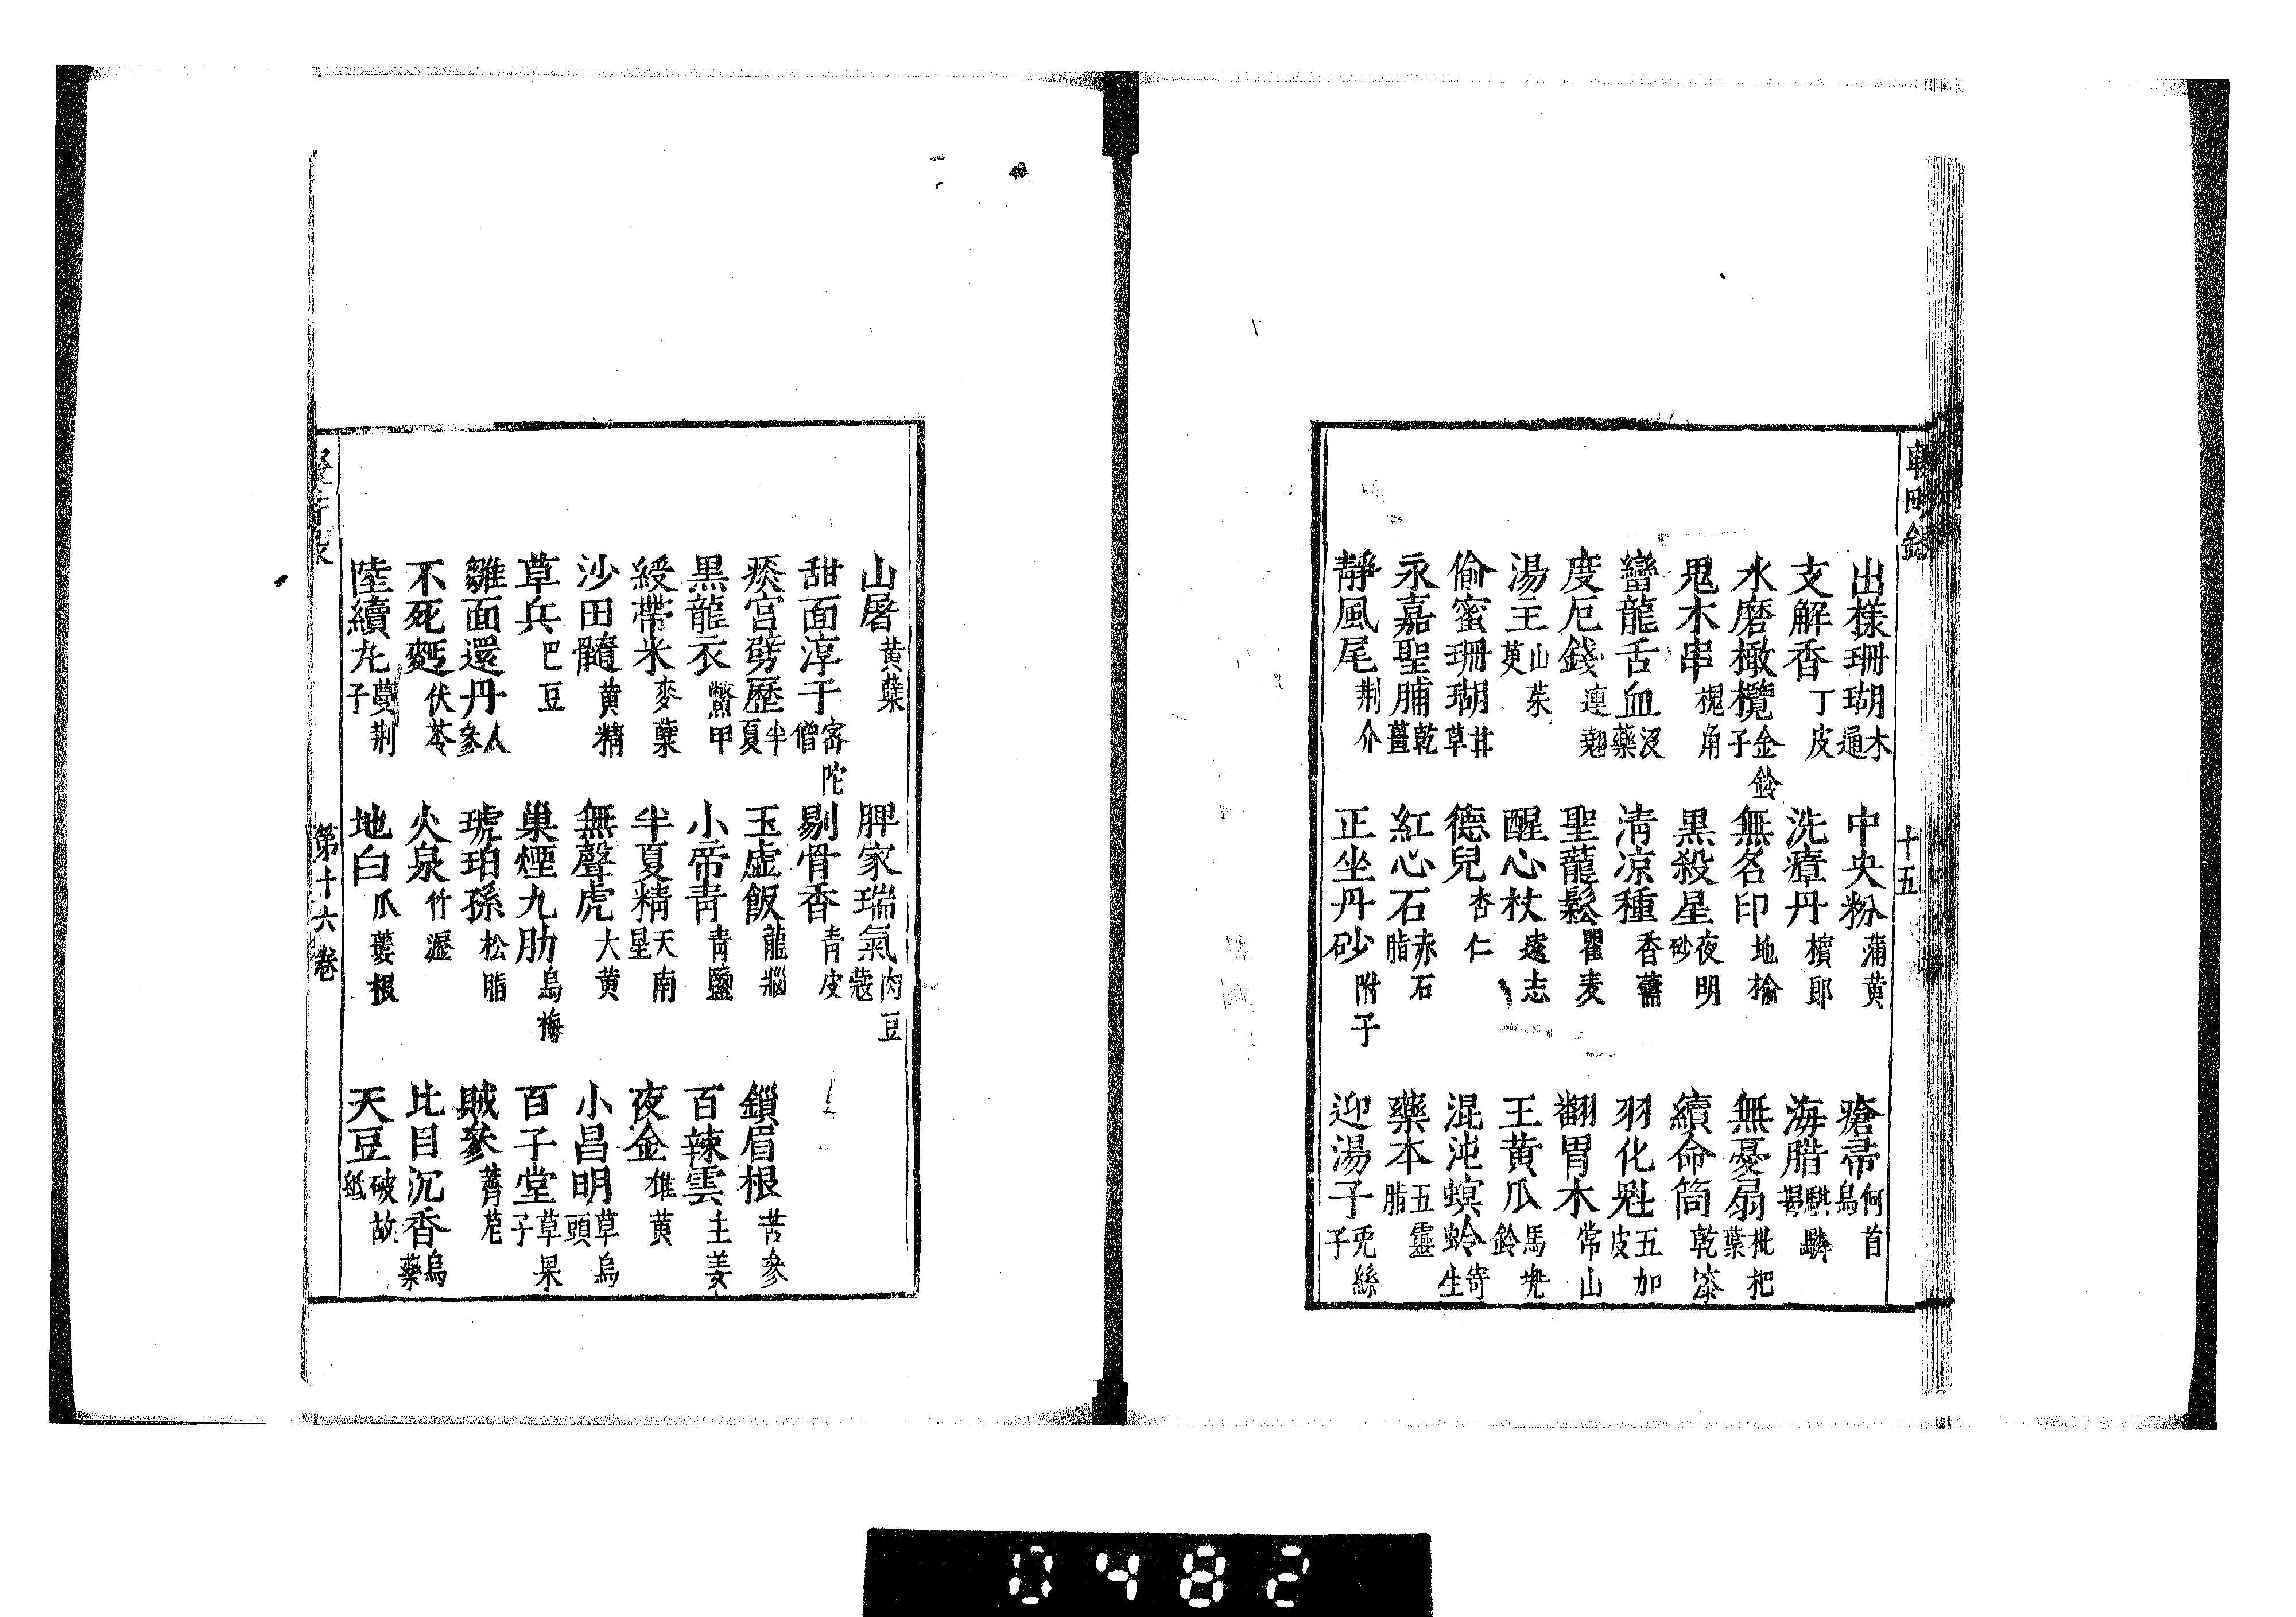 出様珊瑚木通　中央粉蒲黄　瘡帚何首烏
支解香丁皮　洗瘴丹檳郎　海腊騏驎竭
水磨橄欖金鈴子　無名印地榆　無憂扇枇杷葉
鬼木串槐角　黒殺星夜明砂　續命筒乾漆
蠻龍舌血没藥　清凉種香薷　羽化魁五加皮
度厄錢連翹　聖龍鬆瞿麦　翻胃木常山
湯主山茱萸　醒心杖遠志　王黄瓜馬兠鈴
偷蜜珊瑚甘草　德兒杏仁　混沌螟蛉寄生
永嘉聖脯乾薑　紅心石赤石脂　藥本五靈脂
靜風尾荆介　正坐丹砂附子　迎湯子兎絲子
十五
山屠黄蘗　脾家瑞氣肉豆蔻
甜面淳于宻陀僧　剔骨香青皮
痰宫劈歷半夏　玉虚飯龍腦　鎻眉根苦參
黒龍衣鱉甲　小帝青青鹽　百辣雲土姜
綬帶米麥蘖　半夏精天南星　夜金雄黄
沙田髓黄精　無聲虎大黄　小昌明草烏頭
草兵巴豆　巢煙九肋烏梅　百子堂草果子
雛面還丹人參　琥珀孫松脂　賊參薺苨
不死麪伏苓　火泉竹瀝　比目沉香烏藥
陸續丸蔓荆子　地白瓜蔞根　天豆破故紙
第十六卷
0482